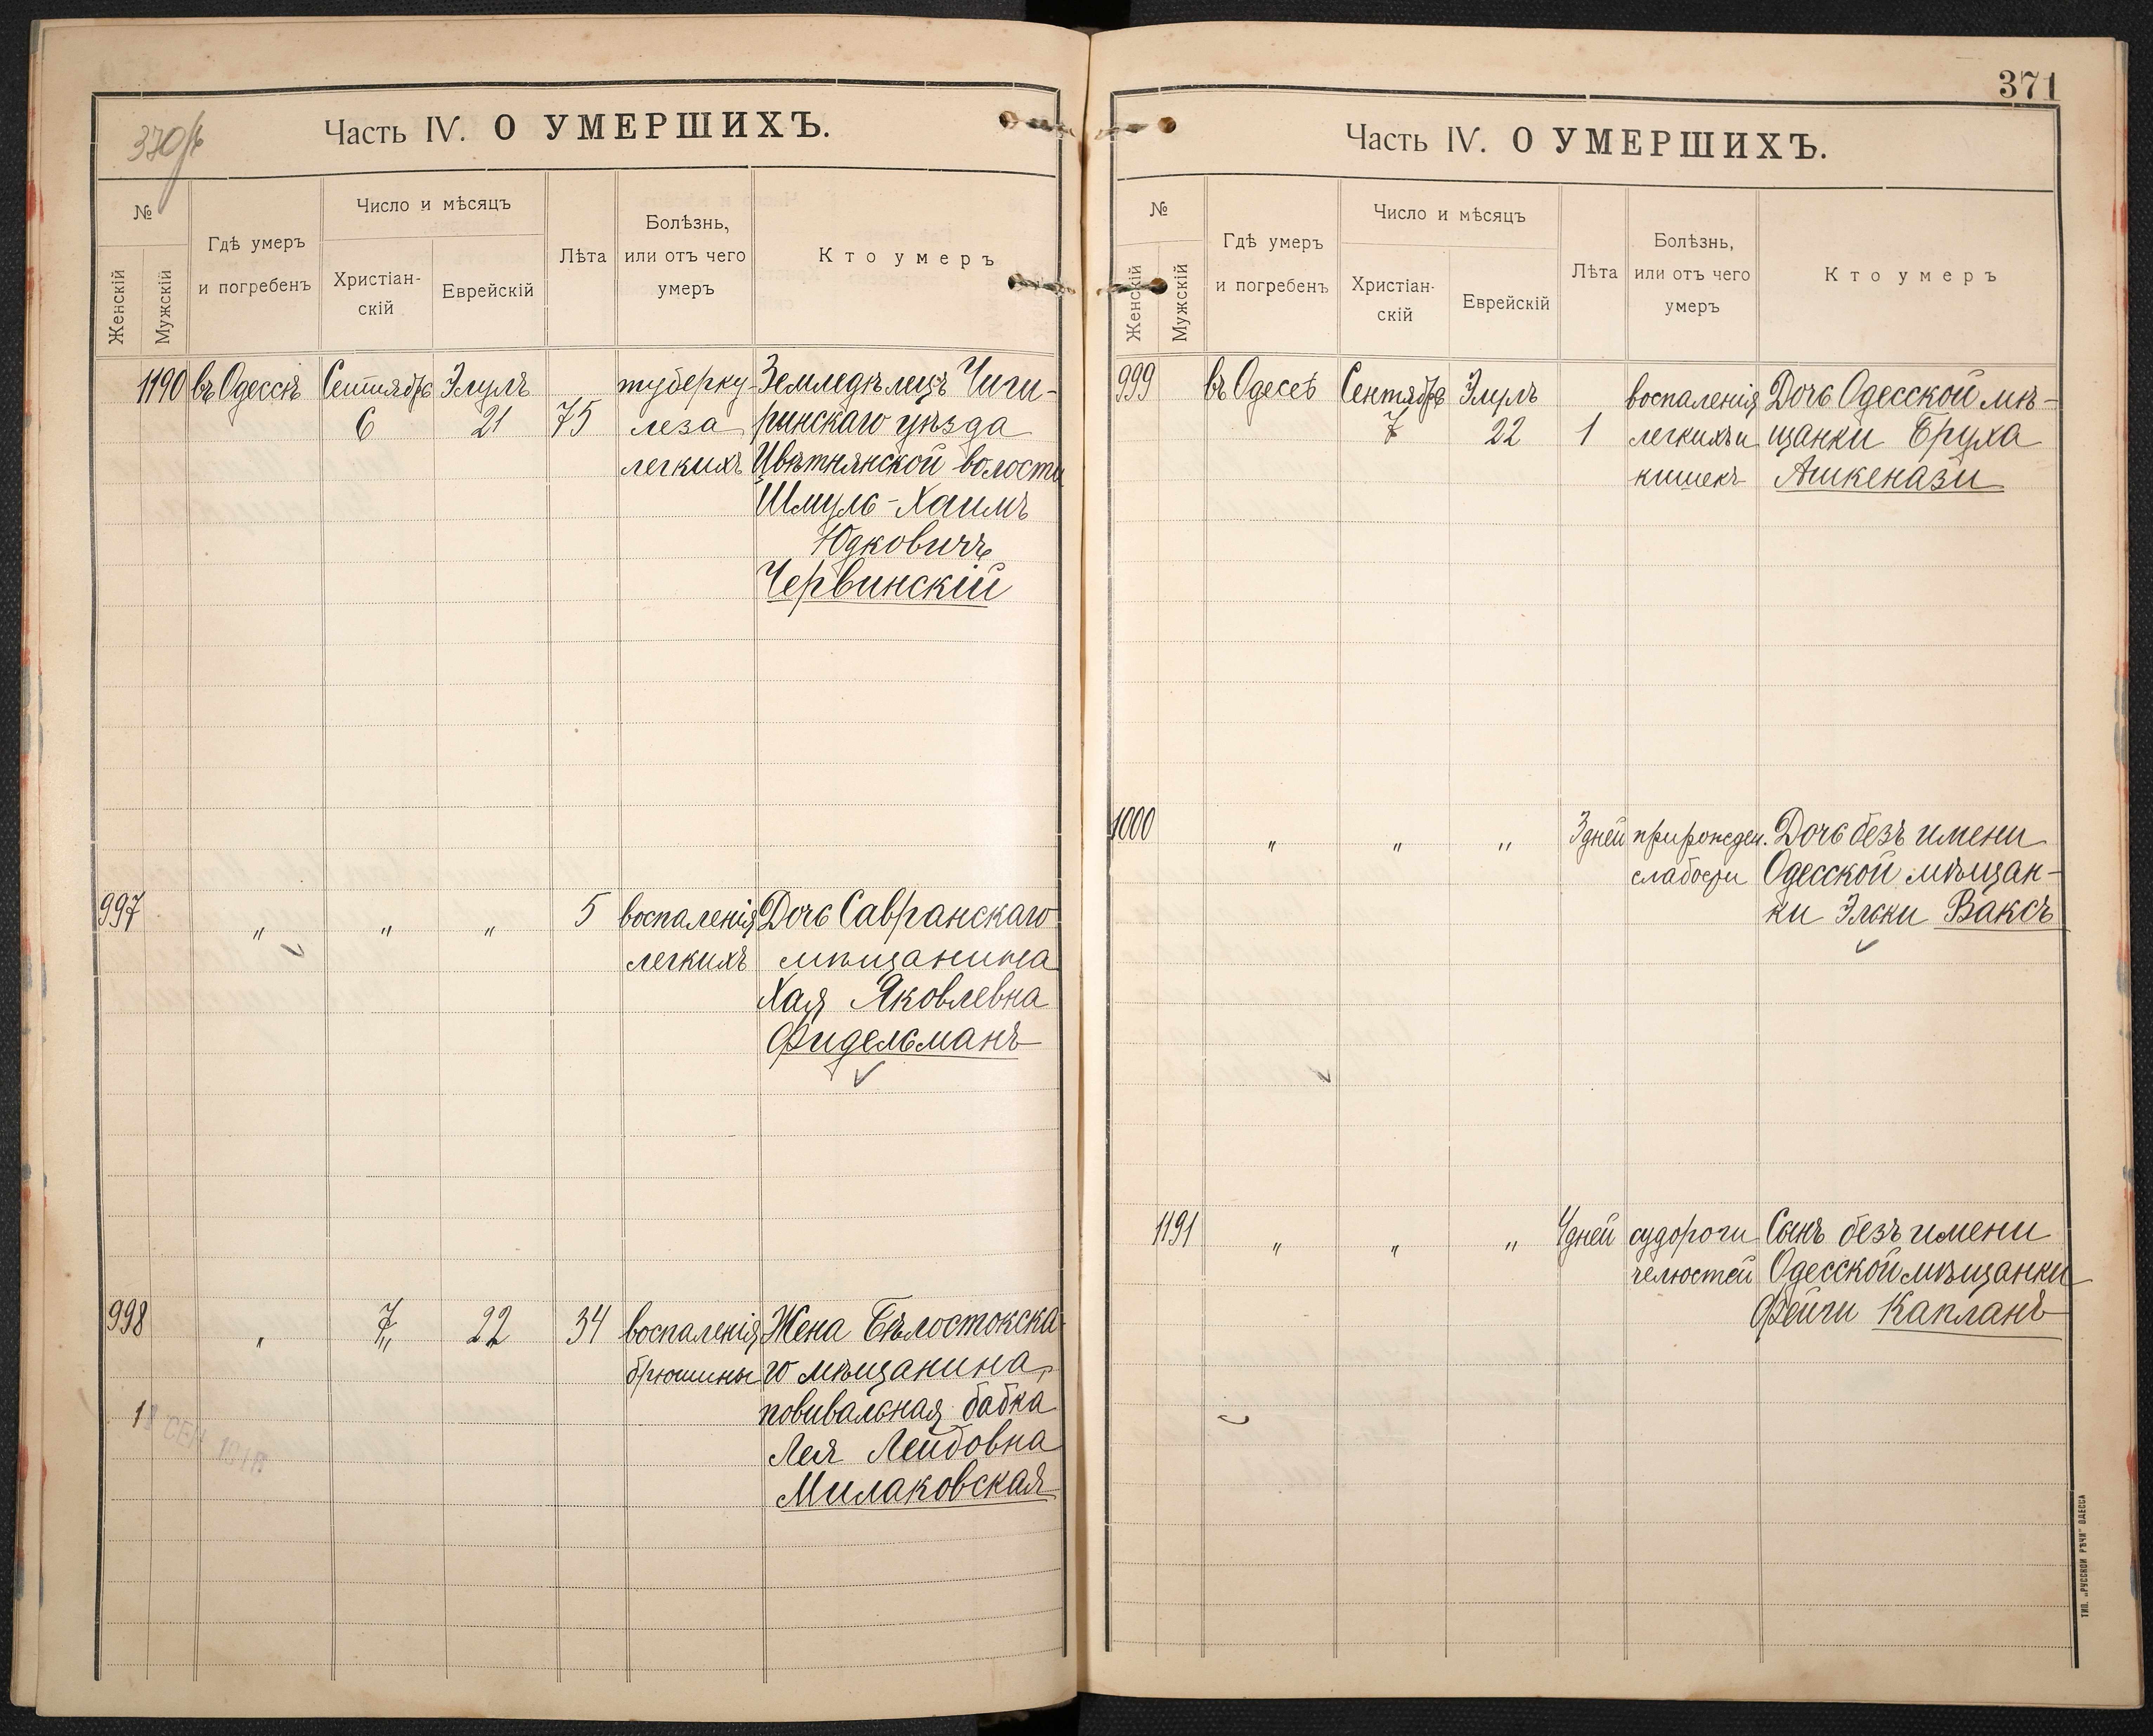 370/б
Часть IV. О УМЕРШИХЪ.
№
Женскій
Мужскій
Гдѣ умеръ
и погребенъ
Число и мѣсяцъ
Христіан-
скій
Еврейскій
Лѣта
Болѣзнь,
или отъ чего
умеръ
Кто умеръ
1190 въ Одессѣ Сентябрь Элулъ туберку- Земледѣлецъ Чиги-
6 21 75 леза ринскаго уѣзда
легкихъ Цвѣтнянской волости
Шмуль-Хаимъ
Юдковичъ
Червинскій
997 " " " 5 воспаленія Дочь Савранскаго
легкихъ мѣщанина
Хая Яковлевна
Фидельманъ
998 " 7 " 22 34 воспаленія Жена Бѣлостокска-
брюшины го мѣщанина,
1 повивальная бабка
18 СЕН
Лея Лейбовна
Милаковская
371
Часть IV. О УМЕРШИХЪ.
№
Женскій
Мужскій
Гдѣ умеръ
и погребенъ
Число и мѣсяцъ
Христіан-
скій
Еврейскій
Лѣта
Болѣзнь,
или отъ чего
умеръ
Кто умеръ
999 въ Одесеѣ Сентябрь Элулъ воспаленія Дочь Одесской мѣ-
7 22 1 легкихъ и щанки Бруха
кишекъ Ашкенази
1000 " " " 3 дней прирожден. Дочь безъ имени
слабости Одесской мѣщан-
ки Эльки Ваксъ
1191 " " " 4 дней судороги Сынъ безъ имени
челюстей Одесской мѣщанки
Фейги Капланъ
ТИП. „РУССКОЙ РѢЧИ" ОДЕССА